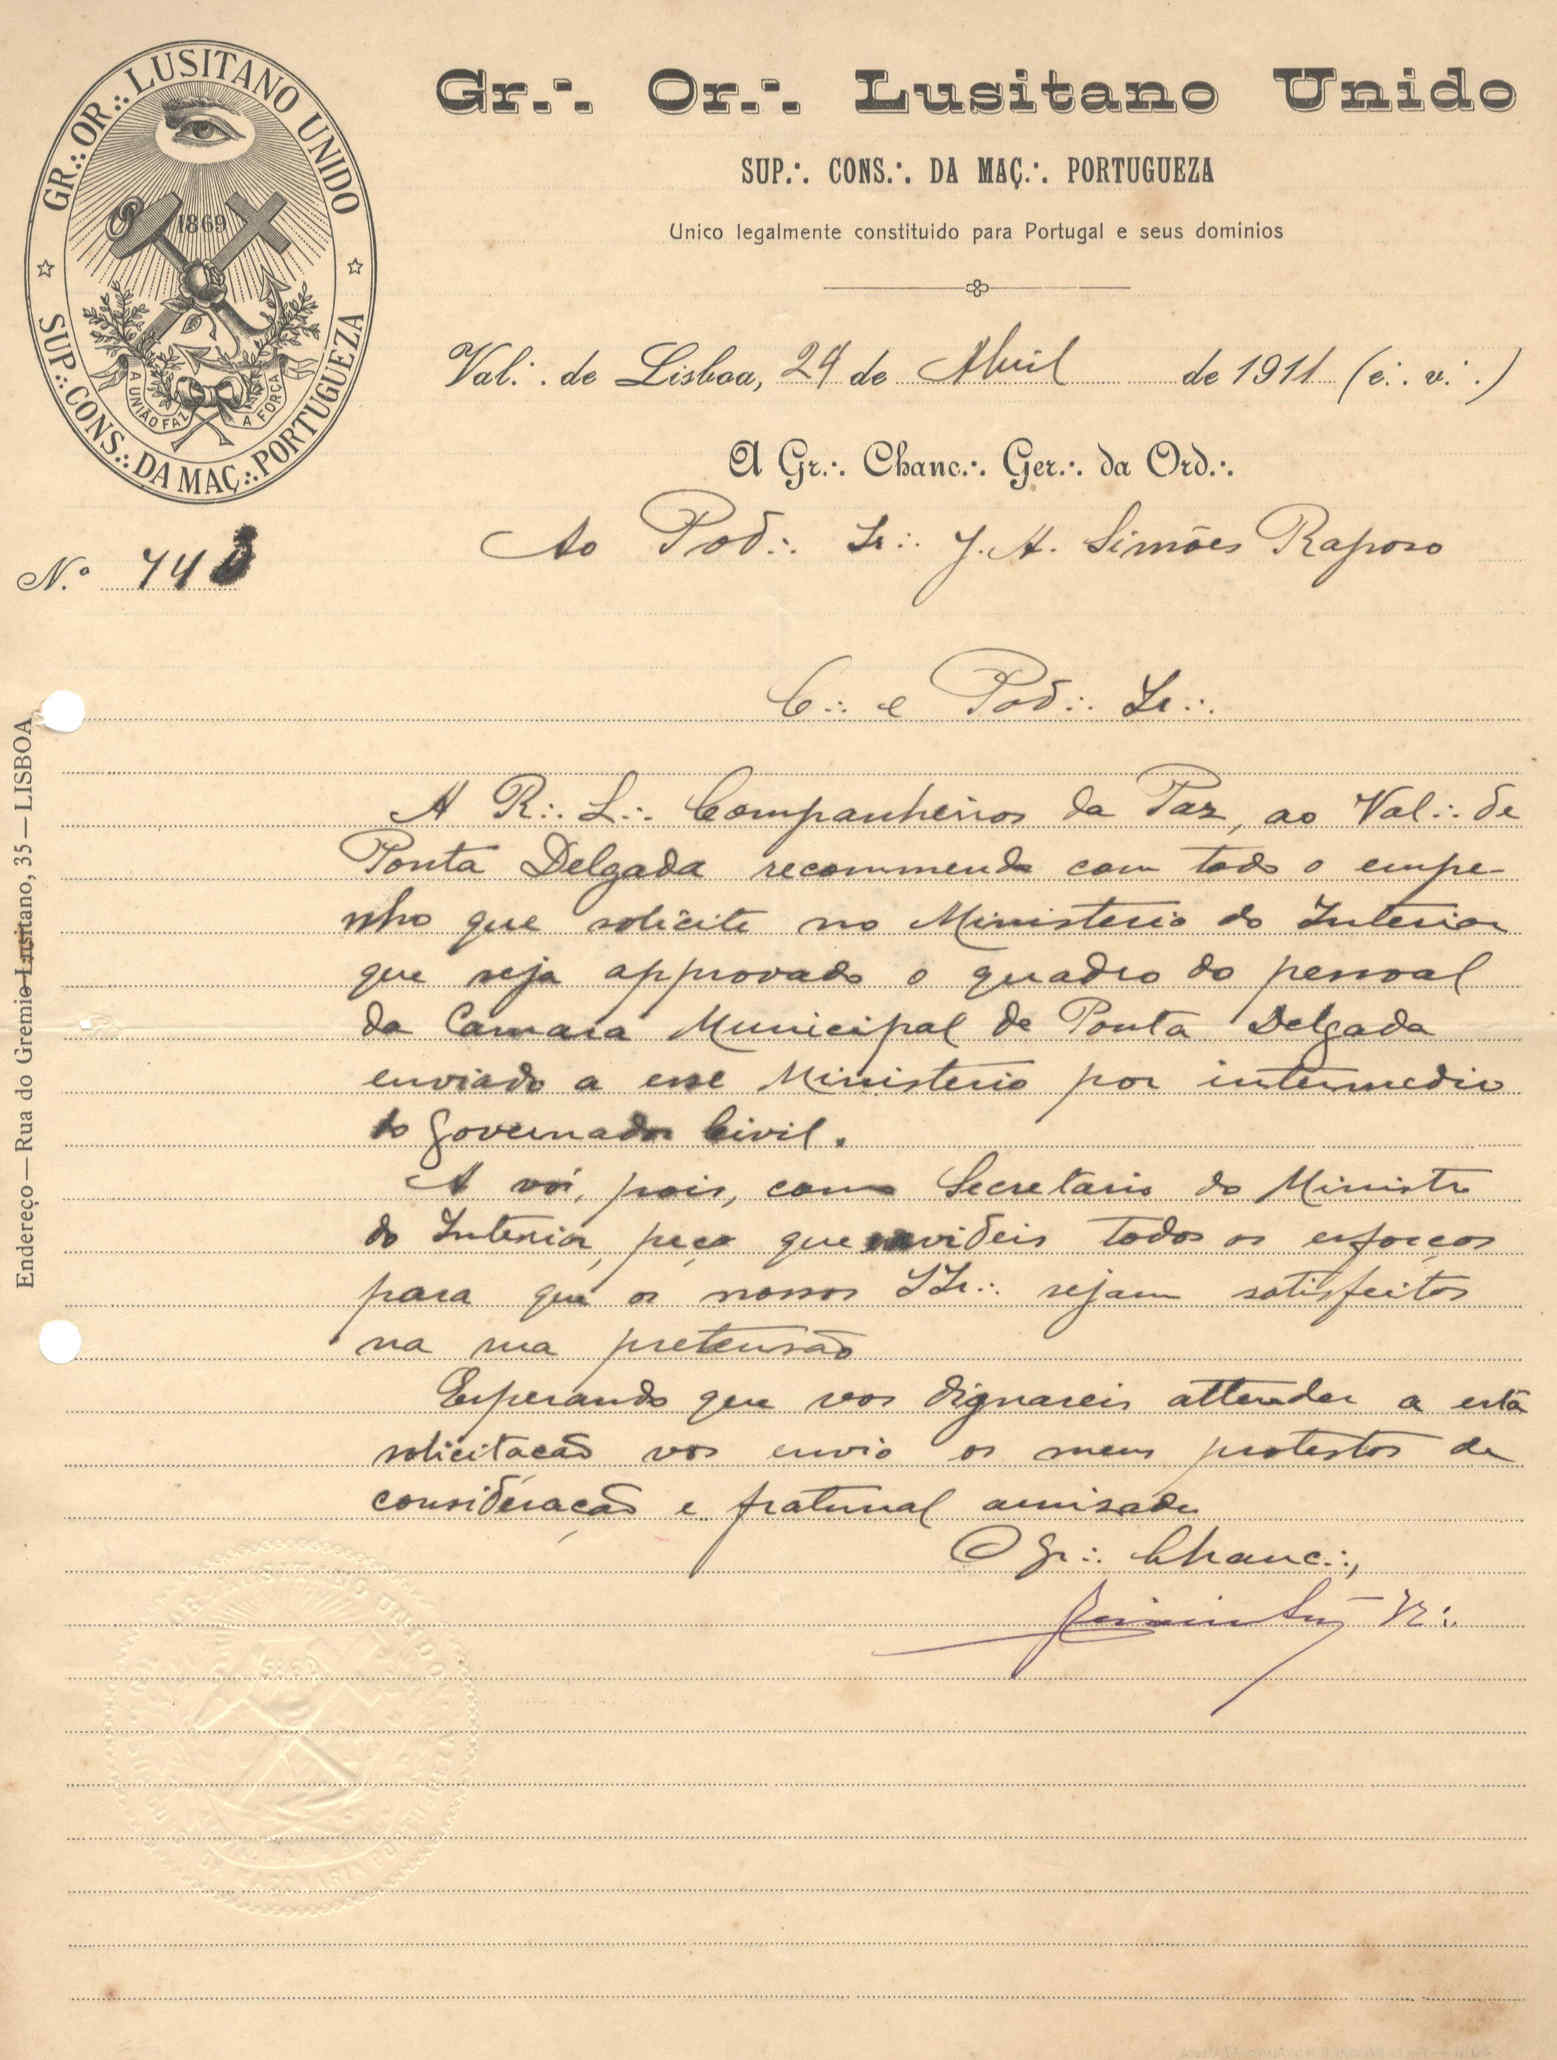 Gr.·. Or.·. Lusitano Unido
SUP.·. CONS.·. DA MAÇ.·. PORTUGUEZA
Unico legalmente constituido para Portugal e seus dominios
GR.·. OR.·. LUSITANO UNIDO
SUP.·. CONS.·. DA MAÇ.·. PORTUGUEZA
1869
A UNIÃO FAZ A FORÇA
Val.·. de Lisboa, 24 de Abril de 1911 (e.·. v.·.)
A Gr.·. Chanc.·. Ger.·. da Ord.·.
Ao Pod.·. Ir.·. J. A. Simões Raposo
N.º 74
C.·. e Pod.·. Ir.·.
A R.·. L.·. Companheiros da Paz, ao Val.·. de
Ponta Delgada recommenda com todo o empe-
nho que solicite no Ministerio do Interior
que seja approvado o quadro do pessoal
da Camara Municipal de Ponta Delgada
enviado a esse Ministerio por intermedio
do Governador Civil.
A vós, pois, como Secretario do Ministro
do Interior, peço que envideis todos os esforços
para que os nossos IIr.·. sejam satisfeitos
na sua pretensão
Esperando que vos dignareis attender a esta
solicitacão vos envio os meus protestos de
consideração e fraternal amisade
O Gr.·. Chanc.·.,
Endereço — Rua do Gremio Lusitano, 35 — LISBOA